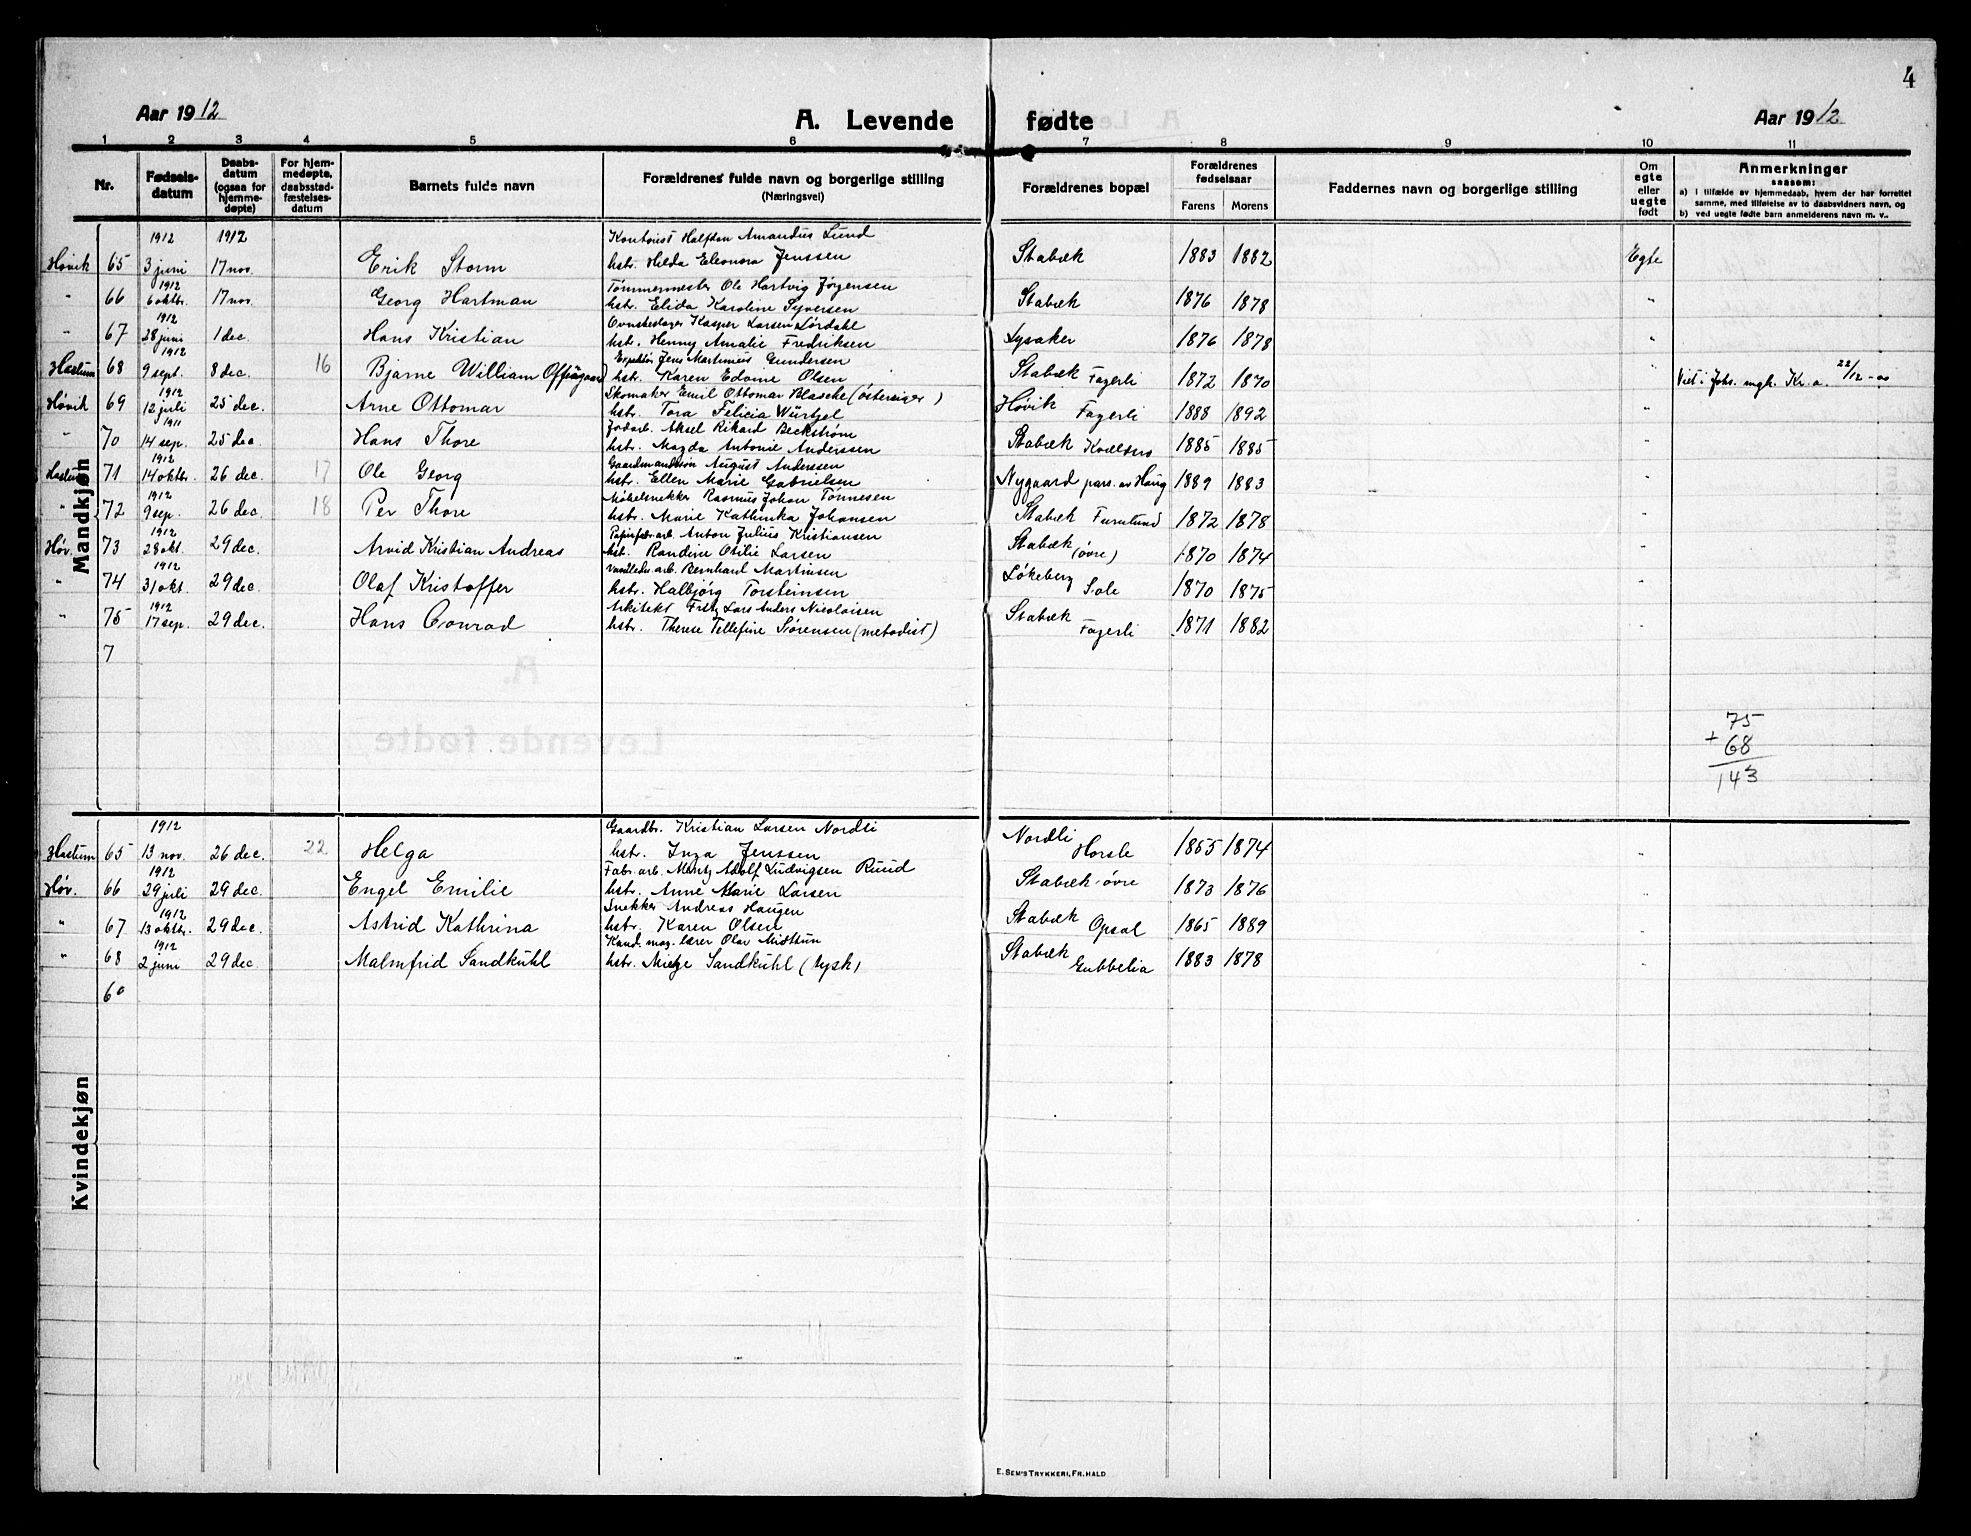 4
Aar 1912
A. Levende fødte
Aar 1912
1 2 3 4 5 6 7 8 9 10 11
Nr.
Fødsels-datum
Daabs-datum (ogsaa for hjemme-døpte)
For hjem-medøpte, daabsstad-fæstelses-datum
Barnets fulde navn
Forældrenes fulde navn og borgerlige stilling (Næringsvei)
Forældrenes bopæl
Forældrenes fødselsaar
Farens Morens
Faddernes navn og borgerlige stilling
Om egte eller uegte født
Anmerkninger
saasom:
a) i tilfælde av hjemmedaab, hvem der har forrettet samme, med tilføielse av to daabsvidners navn, og
b) ved uegte fødte barn anmelderens navn m. v..
Mandkjøn
1912 1912 Kontorist Halfdan Amandus Lund
Høvik 65 3 juni 17 nov. Erik Storm hstr. Hilda Eleonora Jenssen Stabæk 1883 1882 Egte
1912 Tømmermester Ole Hartvig Jørgensen
" 66 6 oktbr. 17 nov. Georg Hartman hstr. Elida Karoline Syversen Stabæk 1876 1878 "
1912 Ovnsbeslager Kasper Larsen Lørdahl
" 67 28 juni 1 dec. Hans Kristian hstr. Henny Amalie Fredriksen Lysaker 1876 1878 "
1912 Jens Martinius Gundersen
Haslum 68 9 sept. 8 dec. 16 Bjarne William hstr. Karen Edvine Olsen Stabæk Fagerli 1872 1870 " Viet i Johs. mgh. Kr.a. 22/12-00
1912 Skomaker Emil Ottomar Blasche (østeriger)
Høvik 69 12 juli 25 dec. Arne Ottomar hstr. Tora Felicia Würtzel Høvik Fagerli 1888 1892 "
1911 Jodarb. Aksel Rikard Beckstrøm
" 70 14 sep. 25 dec. Hans Thore hstr. Magda Antonie Anderssen Stabæk 1885 1885 "
1912 Gaardmandssøn August Anderssen
Haslum 71 14 oktbr. 26 dec. 17 Ole Georg hstr. Ellen Marie Gabrielsen Nygaard pars. av Haug 1889 1883 "
1912 Møbelsnekker Rasmus Johan Tønnesen
" 72 9 sep. 26 dec. 18 Per Thore hstr. Marie Kathinka Johansen Stabæk Furulund 1872 1878 "
1912 Papirfabr.arb. Anton Julius Kristiansen
Høv. 73 28 okt. 29 dec. Arvid Kristian Andreas hst. Randine Otilie Larsen Stabæk (øvre) 1870 1874 "
1912 Bernhard Martinsen
" 74 31 okt. 29 dec. Olaf Kristoffer hstr. Halbjørg Torsteinsen Løkeberg Sole 1870 1875 "
1912 Arkitekt Fritz Lars Anders Nicolaisen
" 75 17 sep. 29 dec. Hans Conrad hstr. Therese Tellefine Sørensen (metodist) Stabæk Fagerli 1871 1882 "
7
75
+ 68
143
Kvindekjøn
1912 Gaardbr. Kristian Larsen Nordli
Haslum 65 13 nov. 26 dec. 22 Helga hstr. Inga Jenssen Nordli Horsle 1865 1874 "
1912 Fabr.arb. Mentz Adolf Ludvigsen Ruud
Høv. 66 29 juli 29 dec. Engel Emilie hstr. Anne Marie Larsen Stabæk øvre 1873 1876 "
1912 Snekker Andreas Haugen
" 67 13 oktbr. 29 dec. Astrid Kathrina hstr. Karen Olsen Stabæk Opsal 1865 1889 "
1912 Kand. mag. lærer Olav Midttun
" 68 2 juni 29 dec. Malmfrid Sandkühl hstr. Mietje Sandkühl (tysk) Stabæk Gubbelia 1883 1878 "
60
E. Sem's Trykkeri, Fr.hald